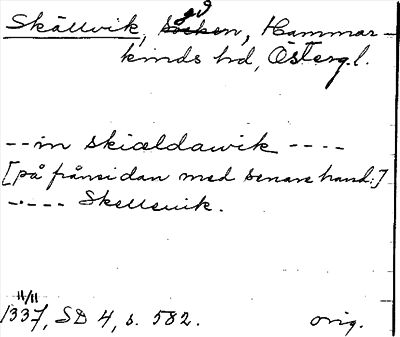 Skällvik, socken, Hammar-
kinds hd, Östergl.
--in skiældawik ----
[på frånsidan med senare hand:]
----- Skellevik.
11/11
1337, SD 4, s. 582. orig.